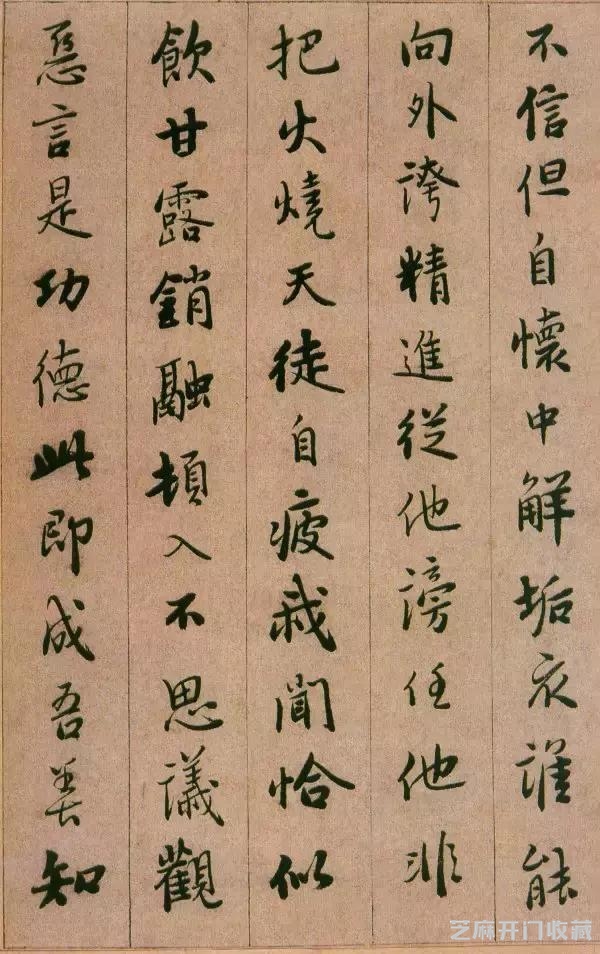 不信但自懷中解垢衣誰能
向外誇精進從他謗任他非
把火燒天徒自疲我聞恰似
飲甘露銷融頓入不思議觀
惡言是功德此即成吾善知
芝麻开门收藏